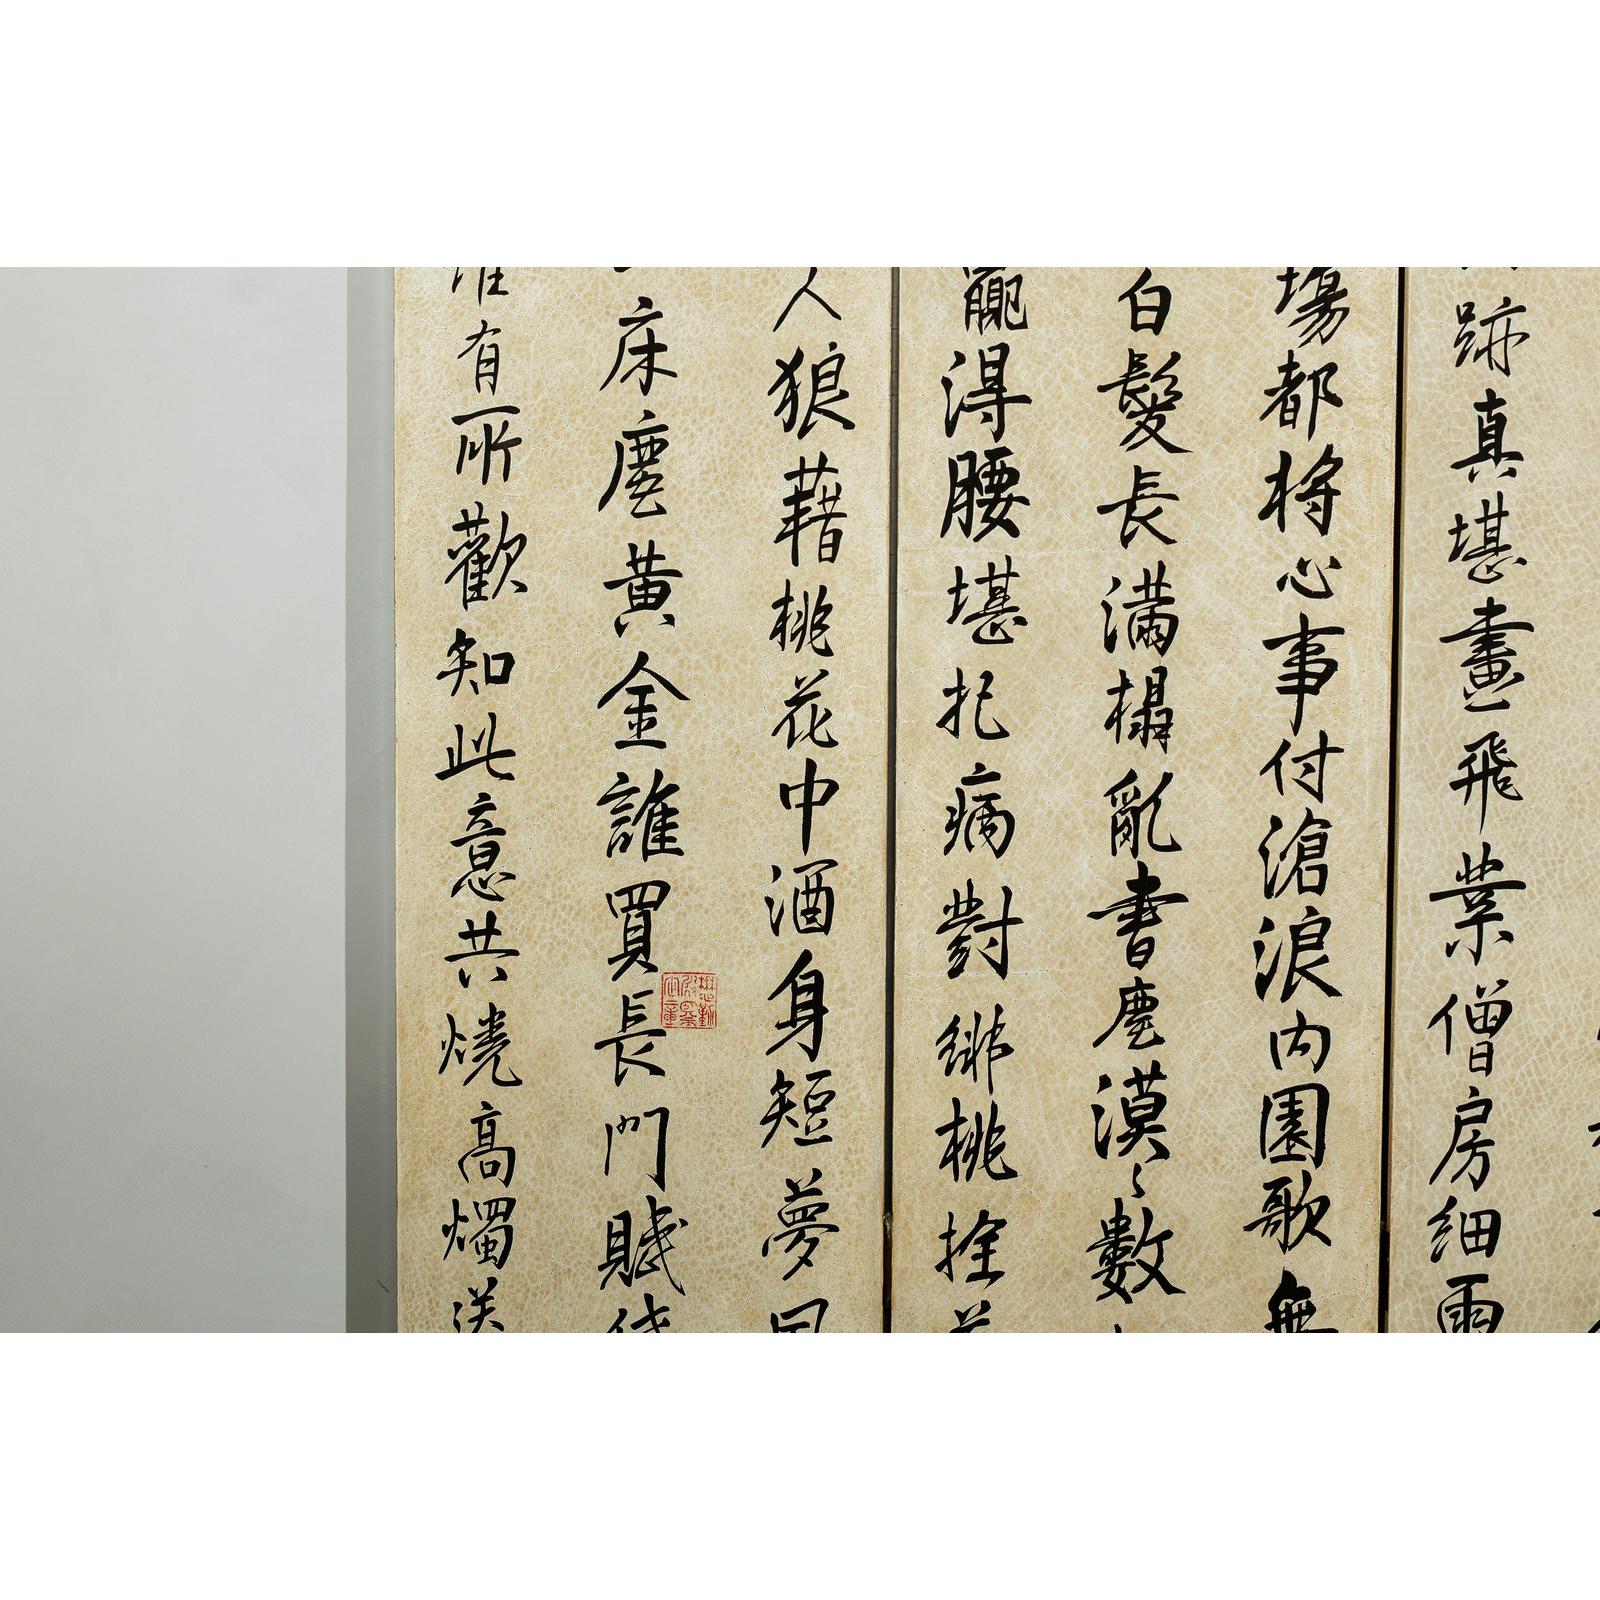 跡真堪畫飛業僧房細雨
場都将心事付滄浪内園歌無
白髮長滿榻亂書塵漠〻數
贏得腰堪把病對緋桃拴
人狼藉桃花中酒身短夢
床塵黄金誰買長門賦
有所歡知此意共燒高燭送